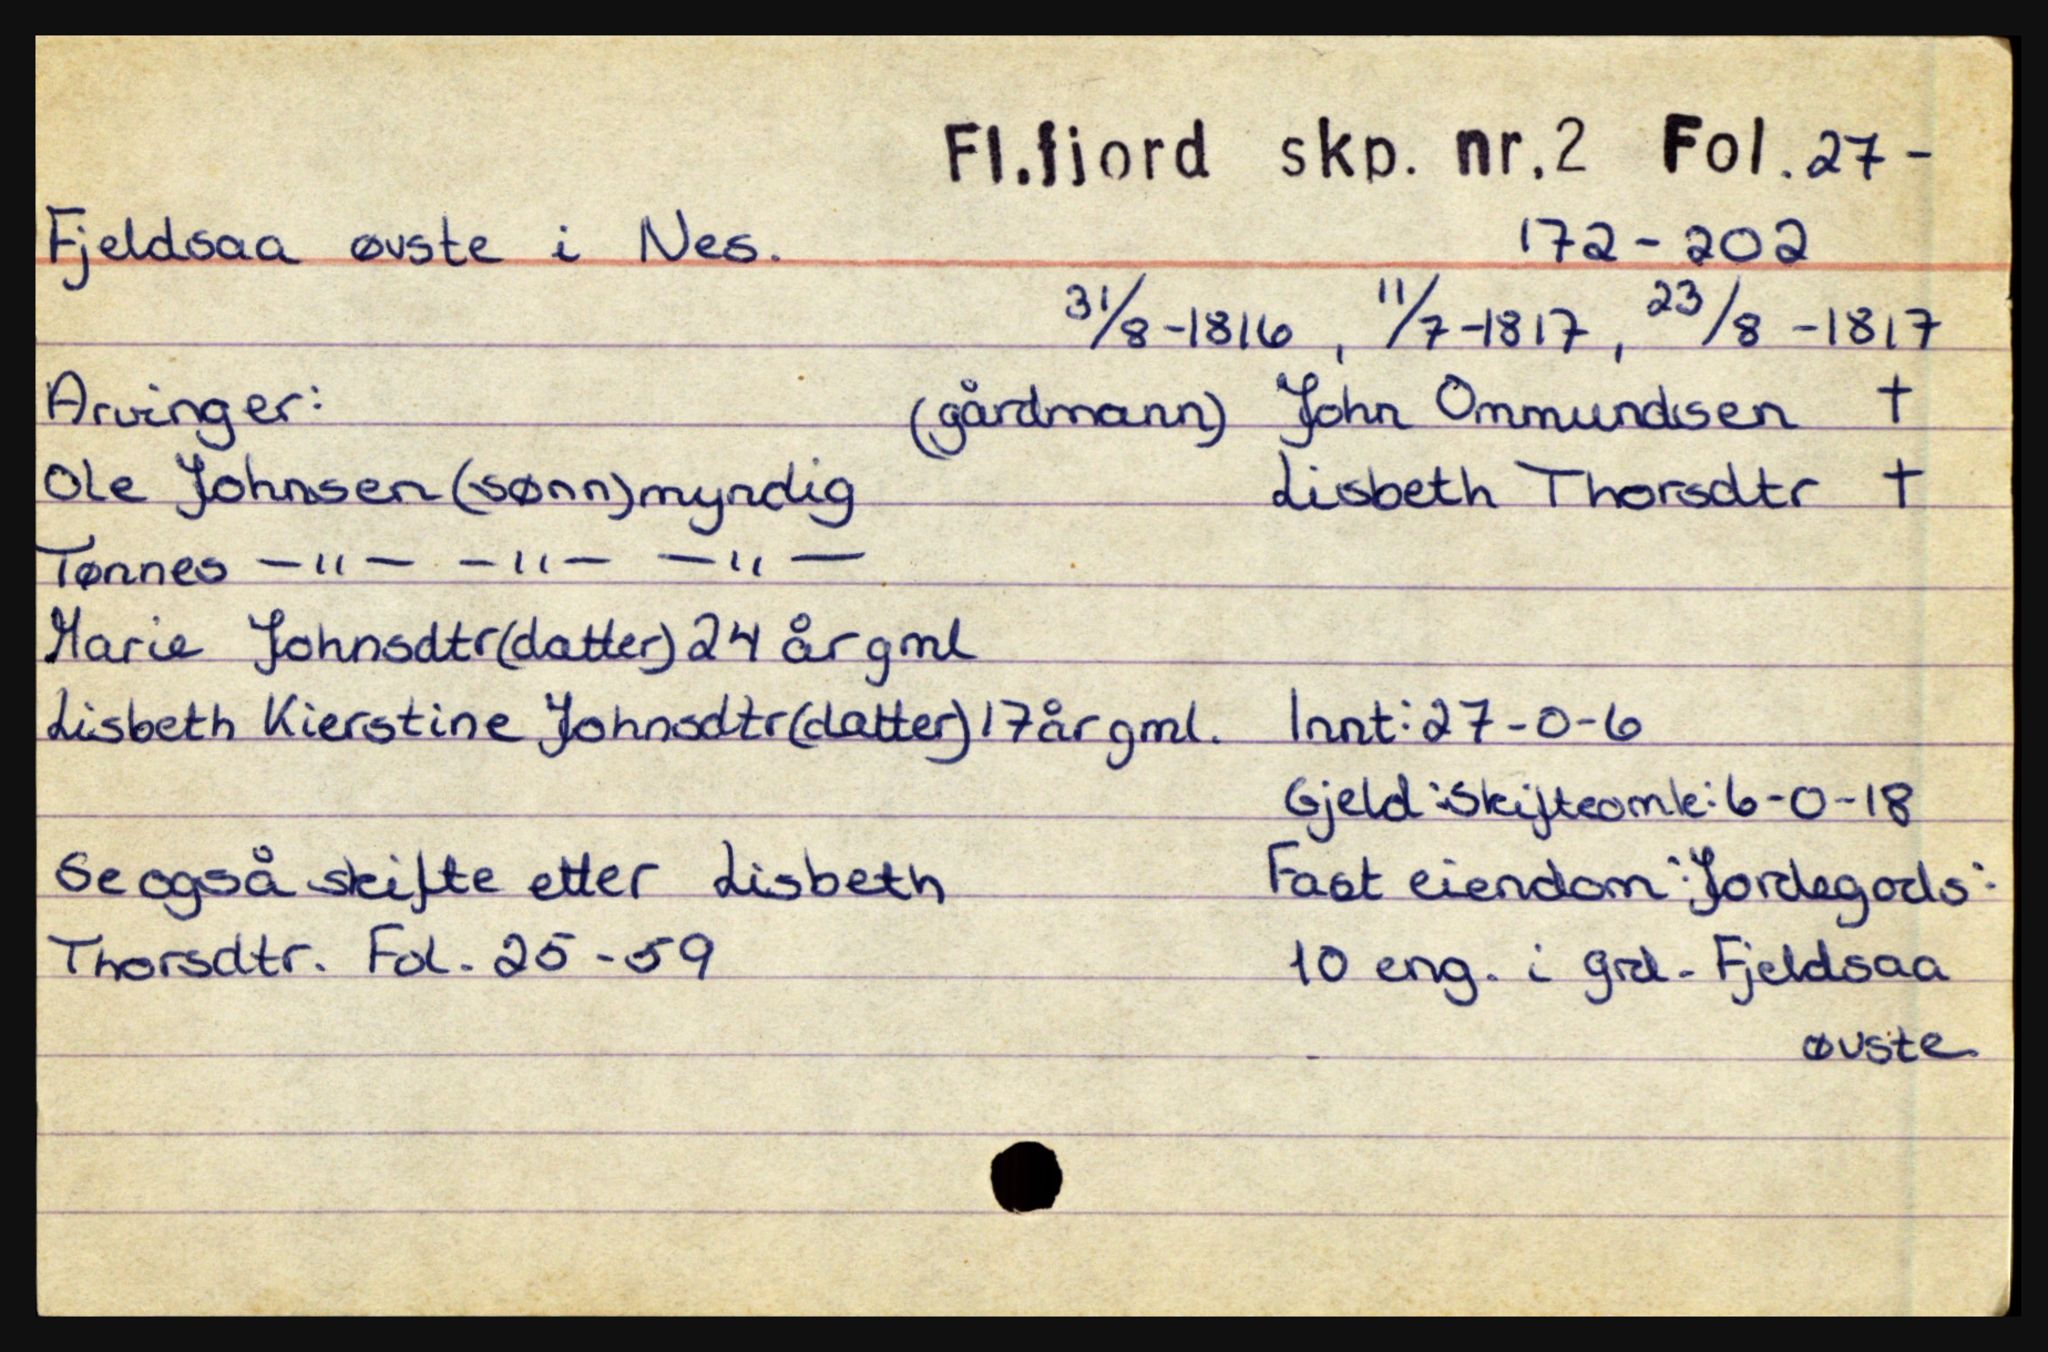 Fl.fjord skp. nr.2 Fol. 27 -
Fjeldsaa øvste i Nes. 172 - 202
31/8 - 1816 , 11/7 - 1817 , 23/8 - 1817
Arvinger: (gårdmann) John Ommundsen †
Ole Johnsen (sønn) myndig Lisbeth Thorsdtr †
Tønnes — " — — " — — " —
Marie Johnsdtr (datter) 24 år gml
Lisbeth Kierstine Johnsdtr (datter) 17 år gml. Innt: 27-0-6
Gjeld: Skifteomk: 6-0-18
Se også skifte etter Lisbeth Fast eiendom: Jordegods:
Thorsdtr. Fol. 25 - 59 10 eng. i grd. Fjeldsaa
øvste